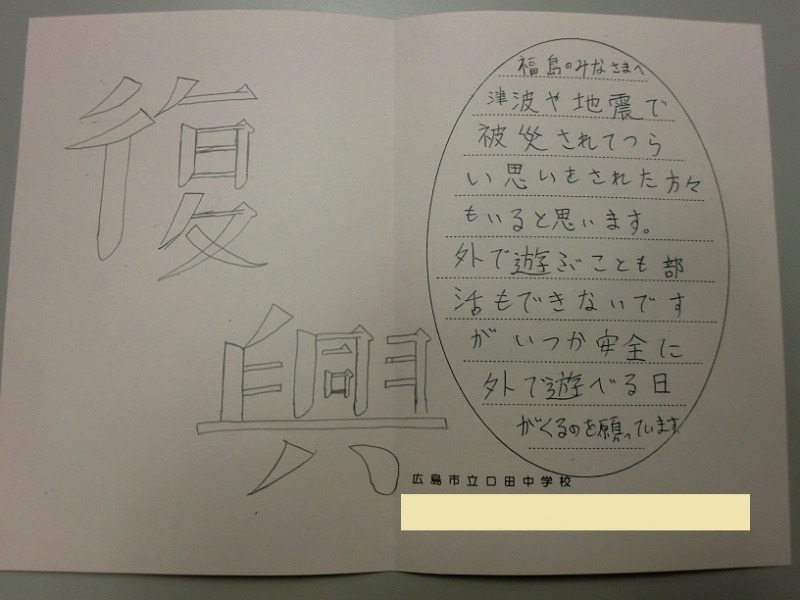 復
興
福島のみなさまへ
津波や地震で
被災されてつら
い思いをされた方々
もいると思います。
外で遊ぶことも部
活もできないです
がいつか安全に
外で遊べる日
がくるのを願っています
広島市立口田中学校